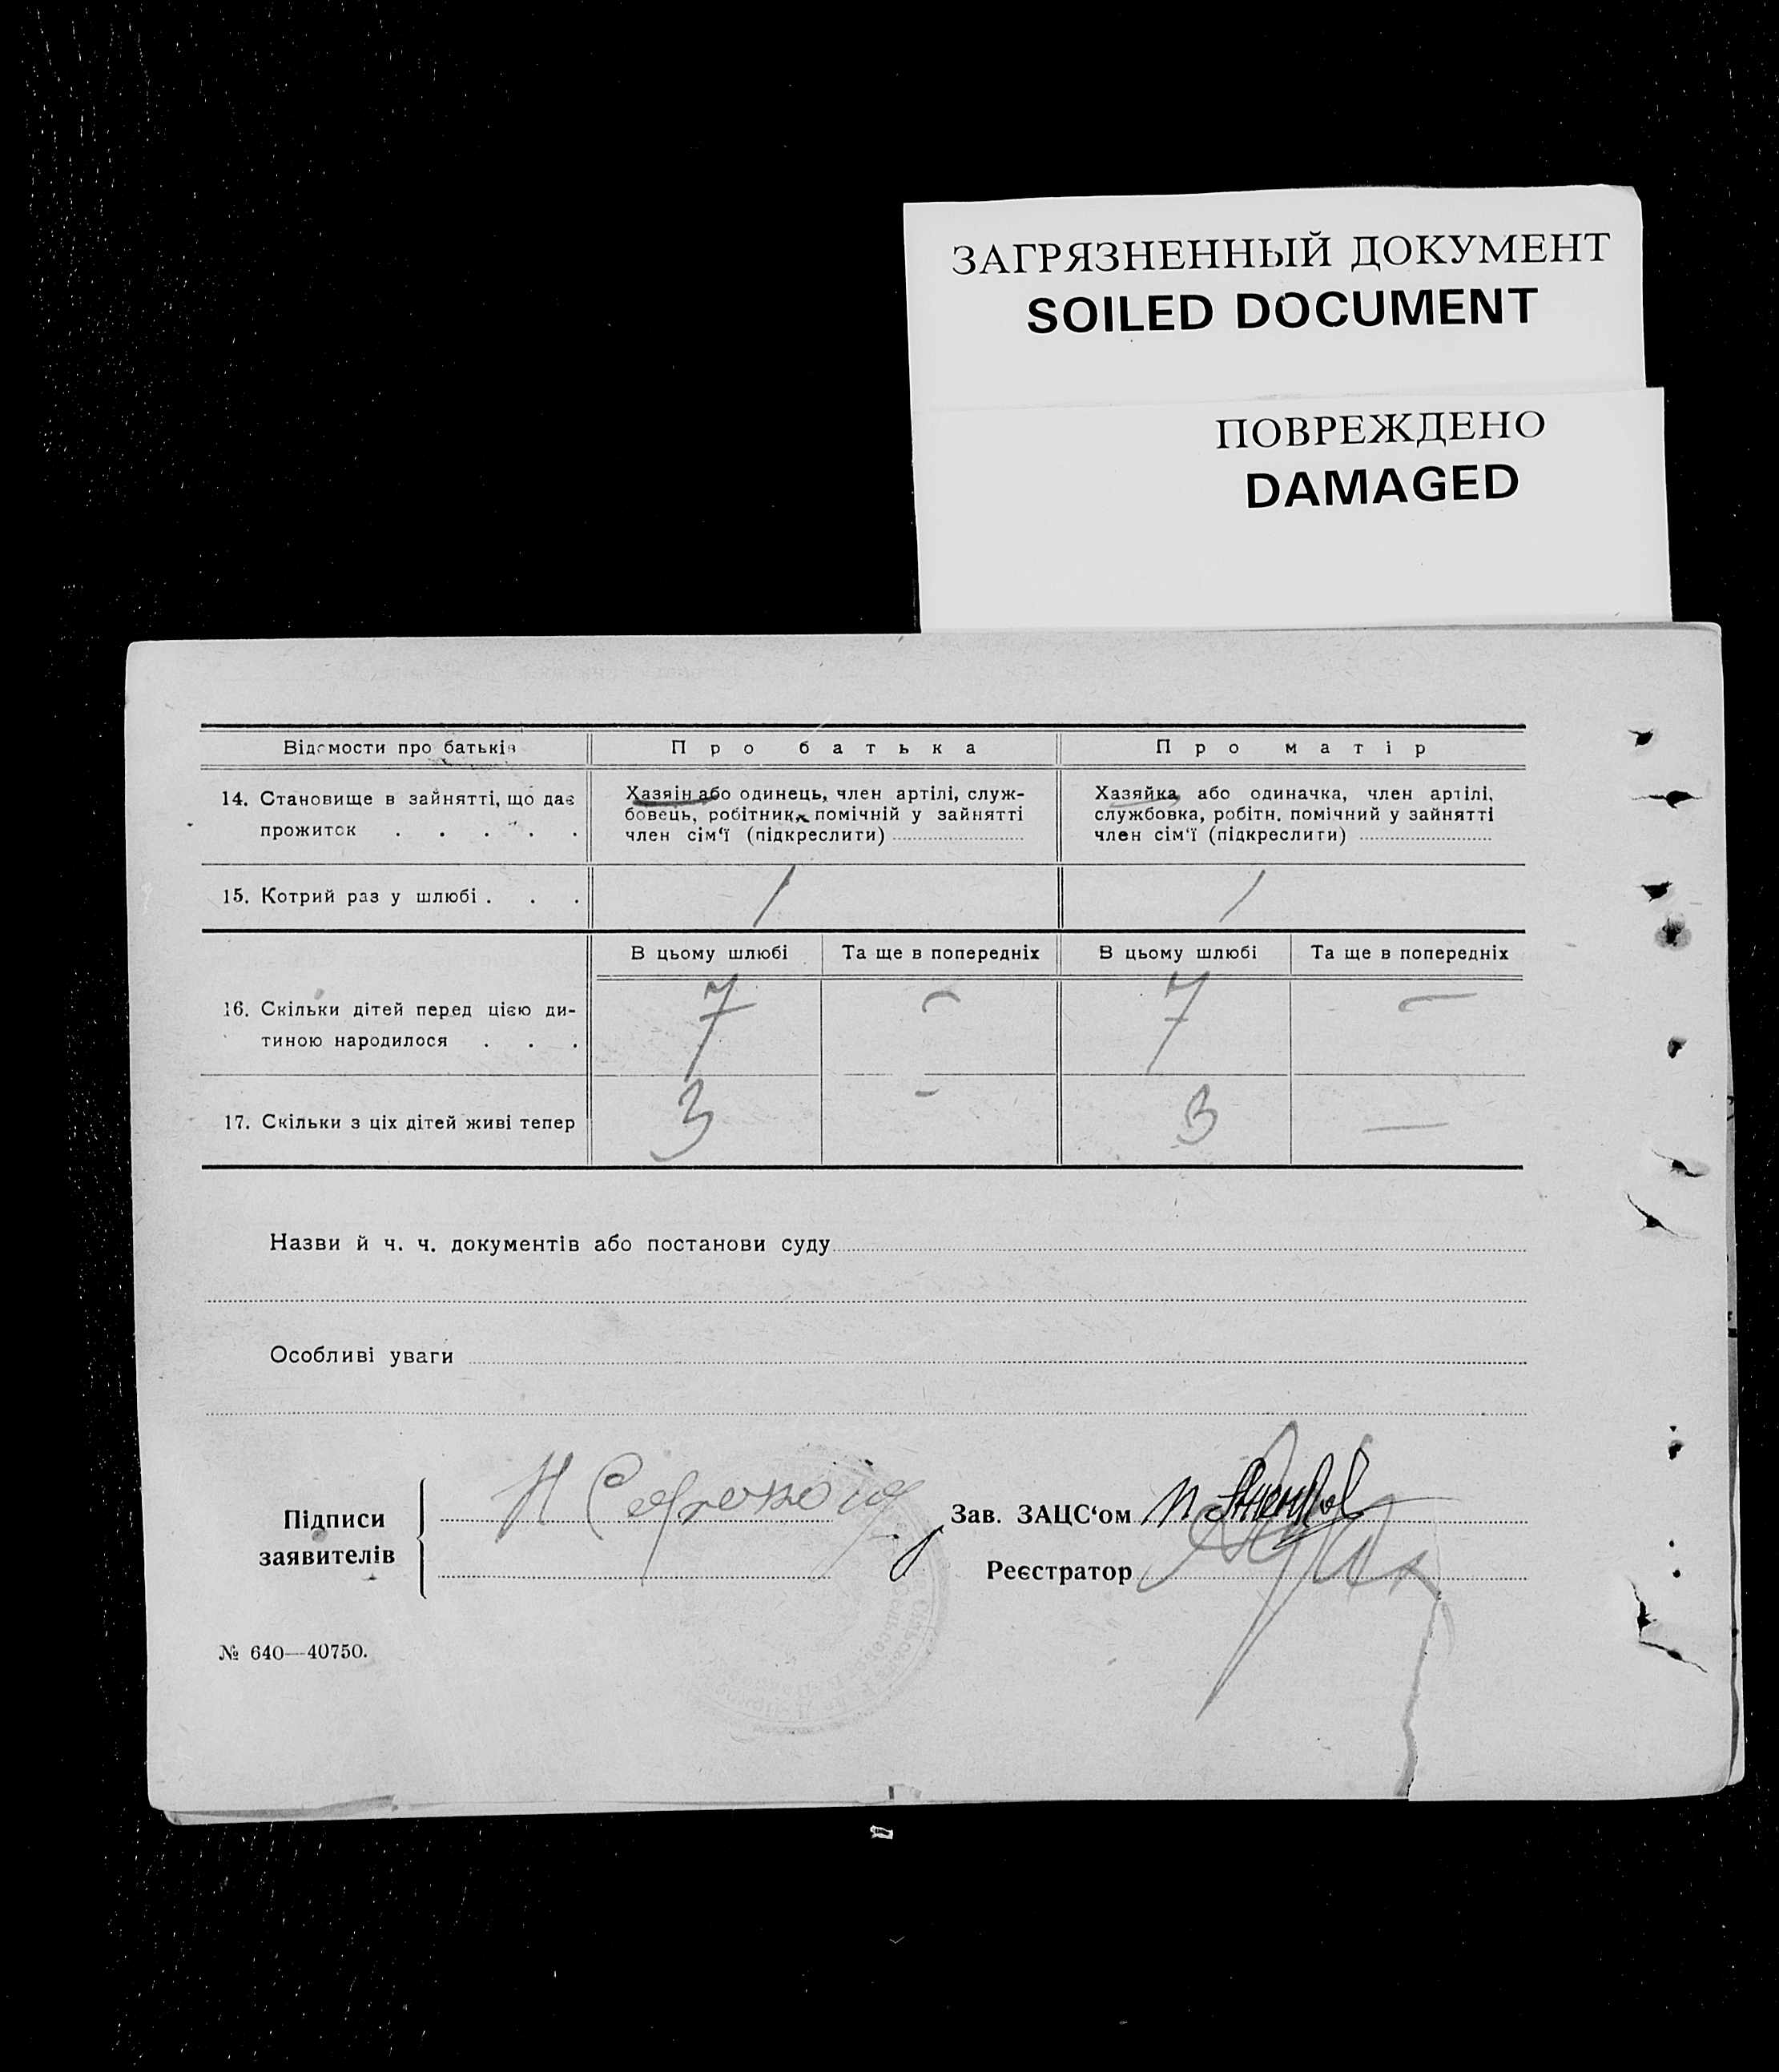 ЗАГРЯЗНЕННЫЙ ДОКУМЕНТ
SOILED DOCUMENT
ПОВРЕЖДЕНО
DAMAGED
Відомости про батьків
Про батька
Про матір
14. Становище в зайнятті, що дає
прожиток . . . . .
Хазяїн або одинець, член артілі, служ-
бовець, робітник, помічній у зайнятті
член сім‘ї (підкреслити)
Хазяйка або одиначка, член артілі,
службовка, робітн. помічний у зайнятті
член сім‘ї (підкреслити)
15. Котрий раз у шлюбі . . .
1
1
В цьому шлюбі
Та ще в попередніх
В цьому шлюбі
Та ще в попередніх
16. Скільки дітей перед цією ди-
тиною народилося . . .
7
-
7
-
17. Скільки з ціх дітей живі тепер
3
-
3
-
Назви й ч. ч. документів або постанови суду
Особливі уваги
Підписи
заявителів
Зав. ЗАЦС‘ом
Реєстратор
№ 640—40750.